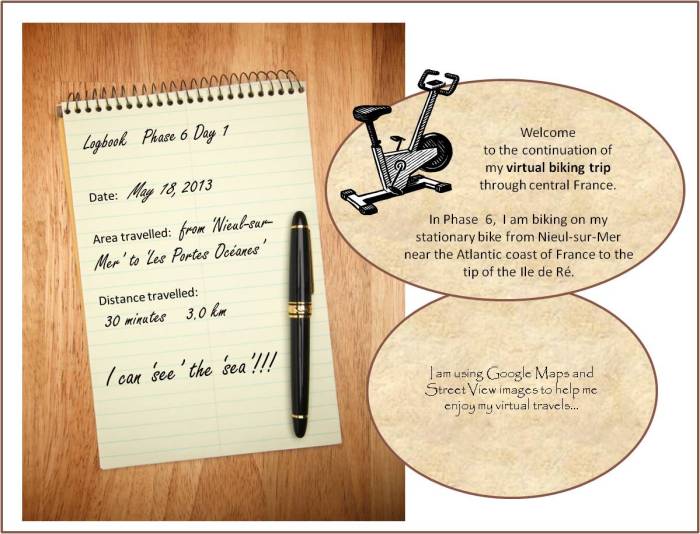 Logbook Phase 6 Day 1
Date: May 18, 2013
Area travelled: from 'Nieul-sur-
Mer' to 'Les Portes Océanes'
Distance travelled:
30 minutes 3,0 km
I can 'see' the 'sea'!!!
Welcome
to the continuation of
my virtual biking trip
through central France.
In Phase 6, I am biking on my
stationary bike from Nieul-sur-Mer
near the Atlantic coast of France to the
tip of the Ile de Ré.
I am using Google Maps and
Street View images to help me
enjoy my virtual travels...